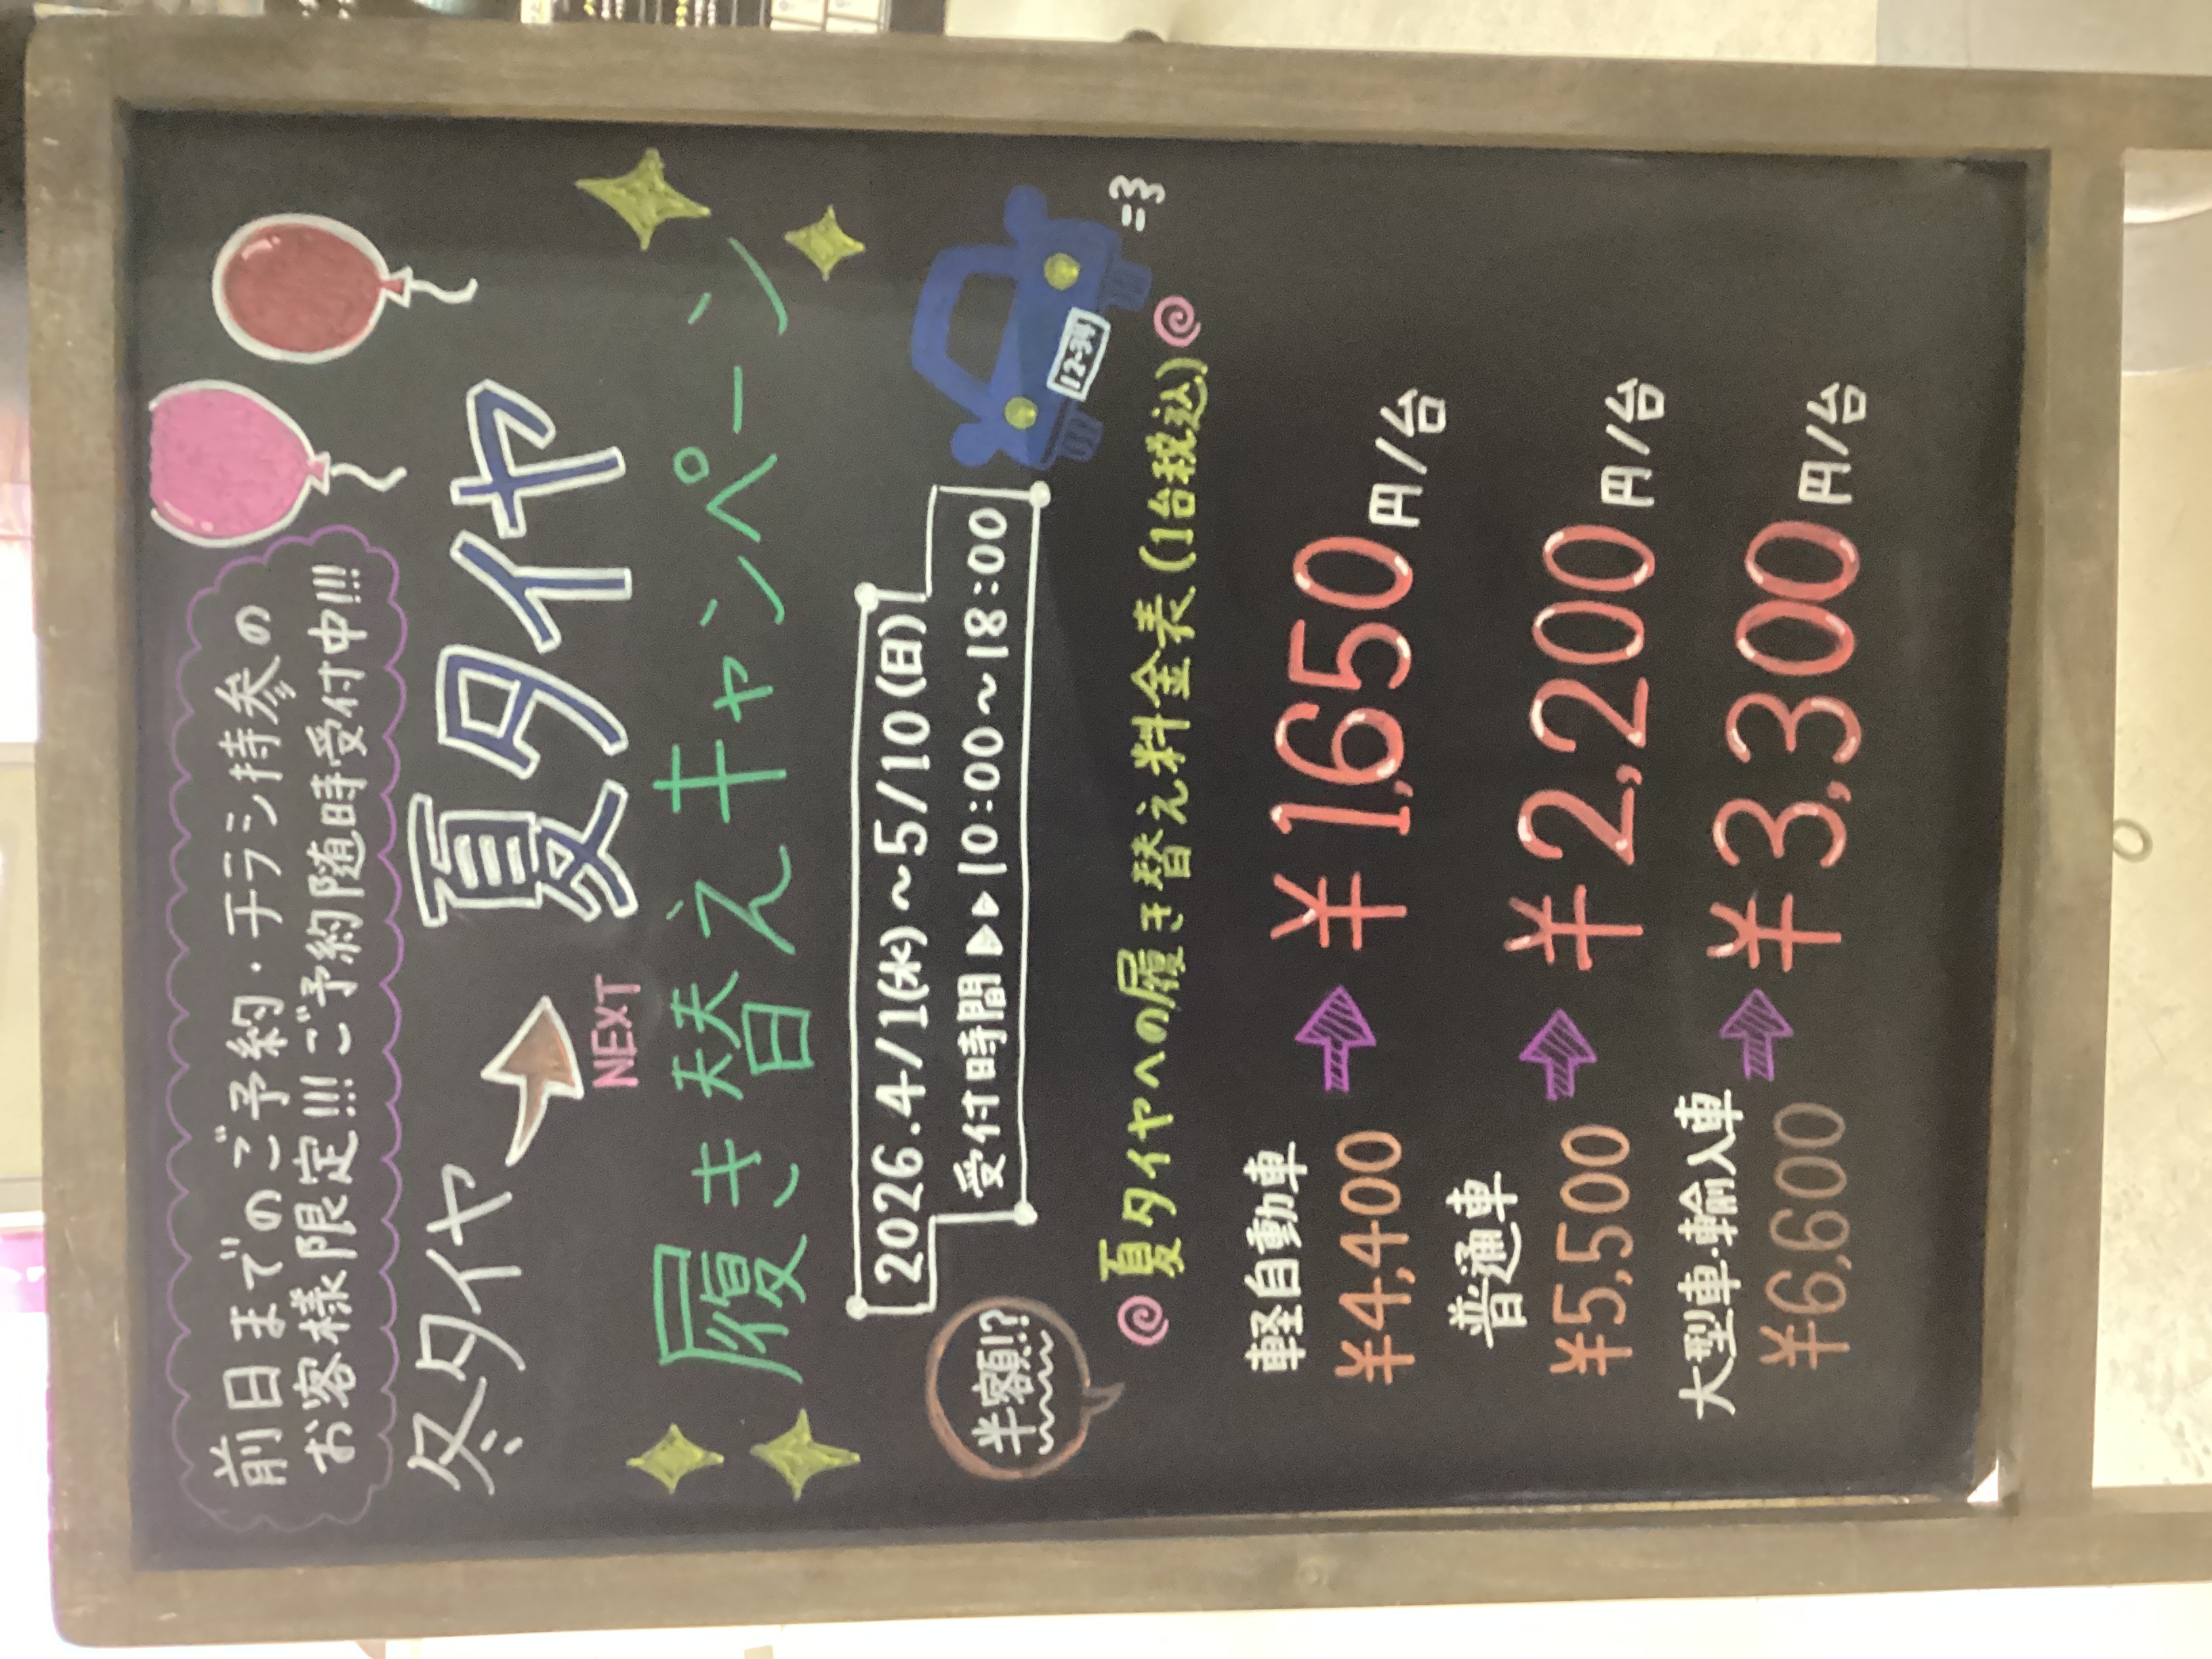 前日までのご予約・チラシ持参の
お客様限定!!!ご予約随時受付中!!!
冬タイヤ
NEXT
夏タイヤ
履き替えキャンペーン
2026.4/1(水)~5/10(日)
受付時間▶▶10:00~18:00
半額!?
12-34
夏タイヤへの履き替え料金表(1台税込)
軽自動車
¥4,400
¥1,650円/台
普通車
¥5,500
¥2,200円/台
大型車・輸入車
¥6,600
¥3,300円/台